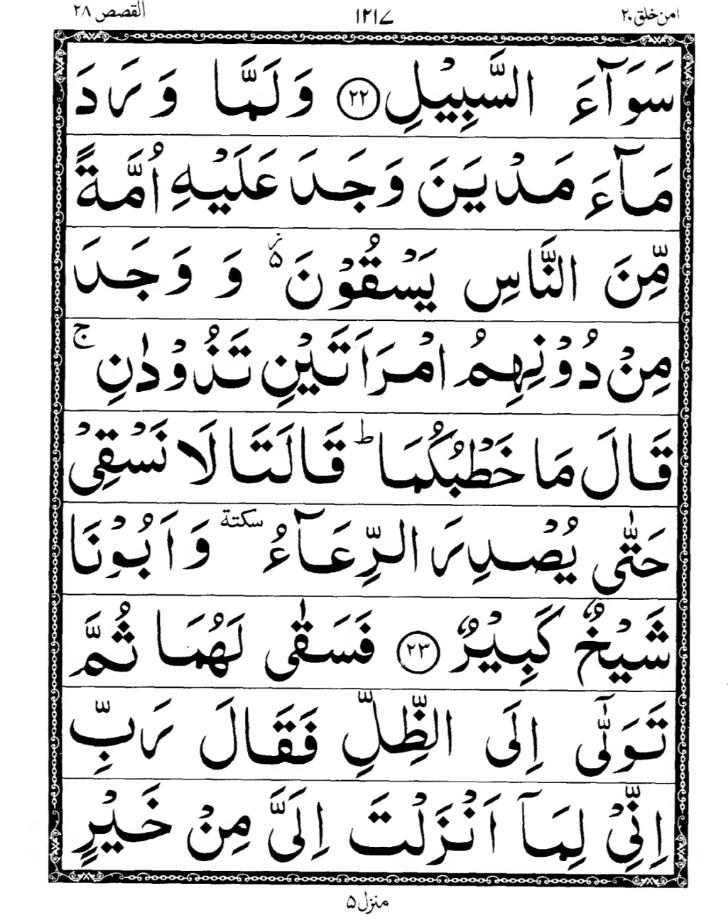 امن خلق ٢٠ ١٢١٧ القصص ٢٨
سَوَآءَ السَّبِيْلِ ﴿٢٢﴾ وَلَمَّا وَرَدَ
مَآءَ مَدْيَنَ وَجَدَ عَلَيْهِ اُمَّةً
مِّنَ النَّاسِ يَسْقُوْنَ ۬ۥ وَ وَجَدَ
مِنْ دُوْنِهِمُ امْرَاَتَيْنِ تَذُوْدٰنِ ۚ
قَالَ مَا خَطْبُكُمَا ؕ قَالَتَا لَا نَسْقِيْ
حَتّٰى يُصْدِرَ الرِّعَآءُ سكتة وَ اَبُوْنَا
شَيْخٌ كَبِيْرٌ ﴿٢٣﴾ فَسَقٰى لَهُمَا ثُمَّ
تَوَلّٰٓى اِلَى الظِّلِّ فَقَالَ رَبِّ
اِنِّيْ لِمَآ اَنْزَلْتَ اِلَيَّ مِنْ خَيْرٍ
منزل ٥